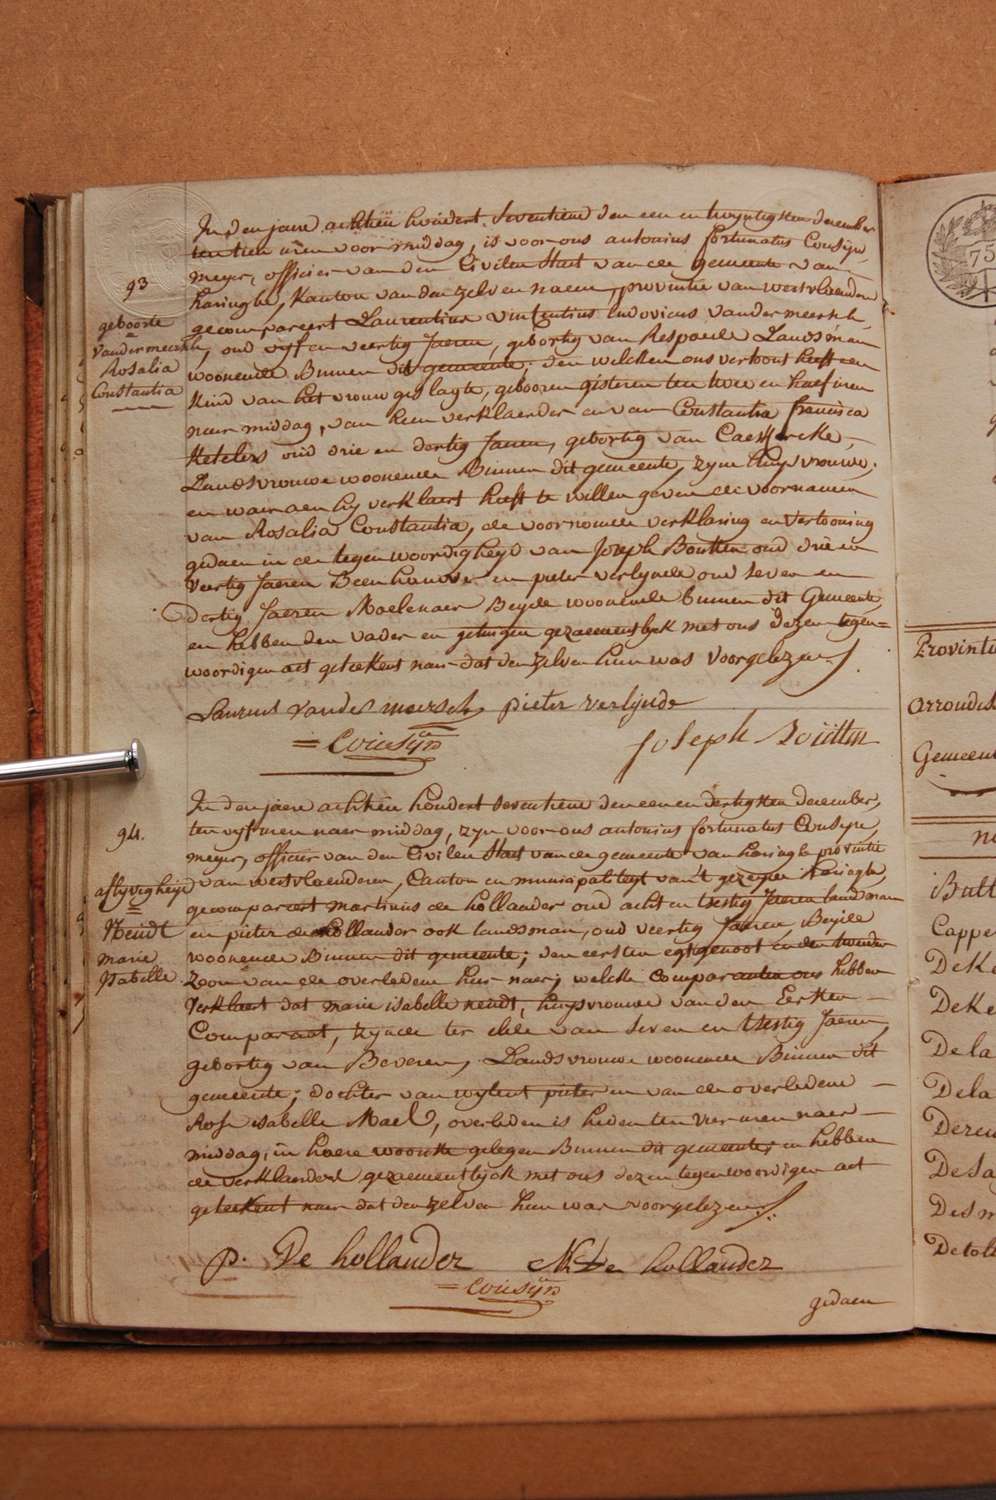 In den jaere achtien hondert seventiene den een en twyntigsten december
ten tien uren voor middag, is voor ons antonius fortunatus Cousyn,
meyer, officier van den Civilen Staet van de gemeente van
haringhe, Kanton van den zelven naem, provintie van westvlaenderen
93
gecompareert Laurentius vincentius ludovicus vandermeersch,
geboorte
oud vyf en veertig Jaeren, gebortig van Respoede Landsman
Vandermeersch
woonende Binnen dit gemeente; den welken ons vertoont heeft een
Rosalia
Kind van het vrouw geslagte, geboren gisteren ten twee en half uren
Constantia
naer middag, van hem verklaerder en van Constantia francisca
Ketelers oud drie en dertig Jaeren, gebortig van Caester
Landsvrouwe woonende Binnen dit gemeente, zyne huysvrouwe,
en waer aen hy verklaert heeft te willen geven de voornamen
van Rosalia Constantia, de voornoemde verklaring en vertooning
gedaen in de tegenwoordigheyd van Joseph Boutten oud drie en
veertig Jaeren Beenhouwer en pieter verlynde oud seven en
dertig Jaeren Molenaer Beyde woonende binnen dit Gemeente,
en hebben den vader en getuigen gezaementlyk met ons dezen tegen=
woordigen act geteekent naer dat den zelven hun was voorgelezen
Laurens vander meersch pieter verlijnde
= Cousijn
Joseph Bouttin
In den jaere achtien hondert seventiene den een en dertigsten december,
94.
ten vyf uren naer middag, zyn voor ons antonius fortunatus Cousyn,
meyer, officier van den Civilen Staet van de gemeente van haringhe provintie
aflyvigheyd
van westvlaenderen, Canton en municipaliteyt van't gezeyde haringhe,
gecompareert martinus de hollander oud acht en tsestig Jaeren landsman
Neudt
en pieter de hollander ook landsman, oud veertig Jaeren, Beyde
marie
woonende Binnen dit gemeente; den eersten egtgenoot en den tweeden
Isabelle
Zoon van de overledene hier naer; welke Comparanten ons hebben
verklaert dat marie isabelle neudt, huysvrouwe van den Eersten
Comparant, zynde ter elde van seven en tsestig Jaeren,
gebortig van Beveren, Landsvrouwe woonende Binnen dit
gemeente; dochter van wylent pieter en van de overledene
Rose isabelle Mael, overleden is heden ten vier uren naer
middag, in haere woonste gelegen Binnen dit gemeente; en hebben
de verklaerders gezaementlyck met ons dezen tegenwoordigen act
geteekent naer dat den zelven hun was voorgelezen
P. De hollander M. De hollander
= Cousijn
gedaen
75
Provintie
Arrondis
Gemeente
Butt
Cappe
De Ke
De Ke
De la
De la
Dere
De Sa
Desm
Detoll